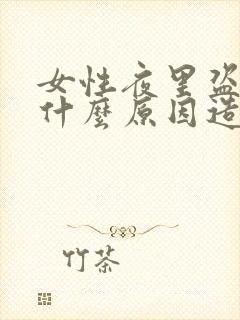 女性夜里盗
什麼原因造
竹茶